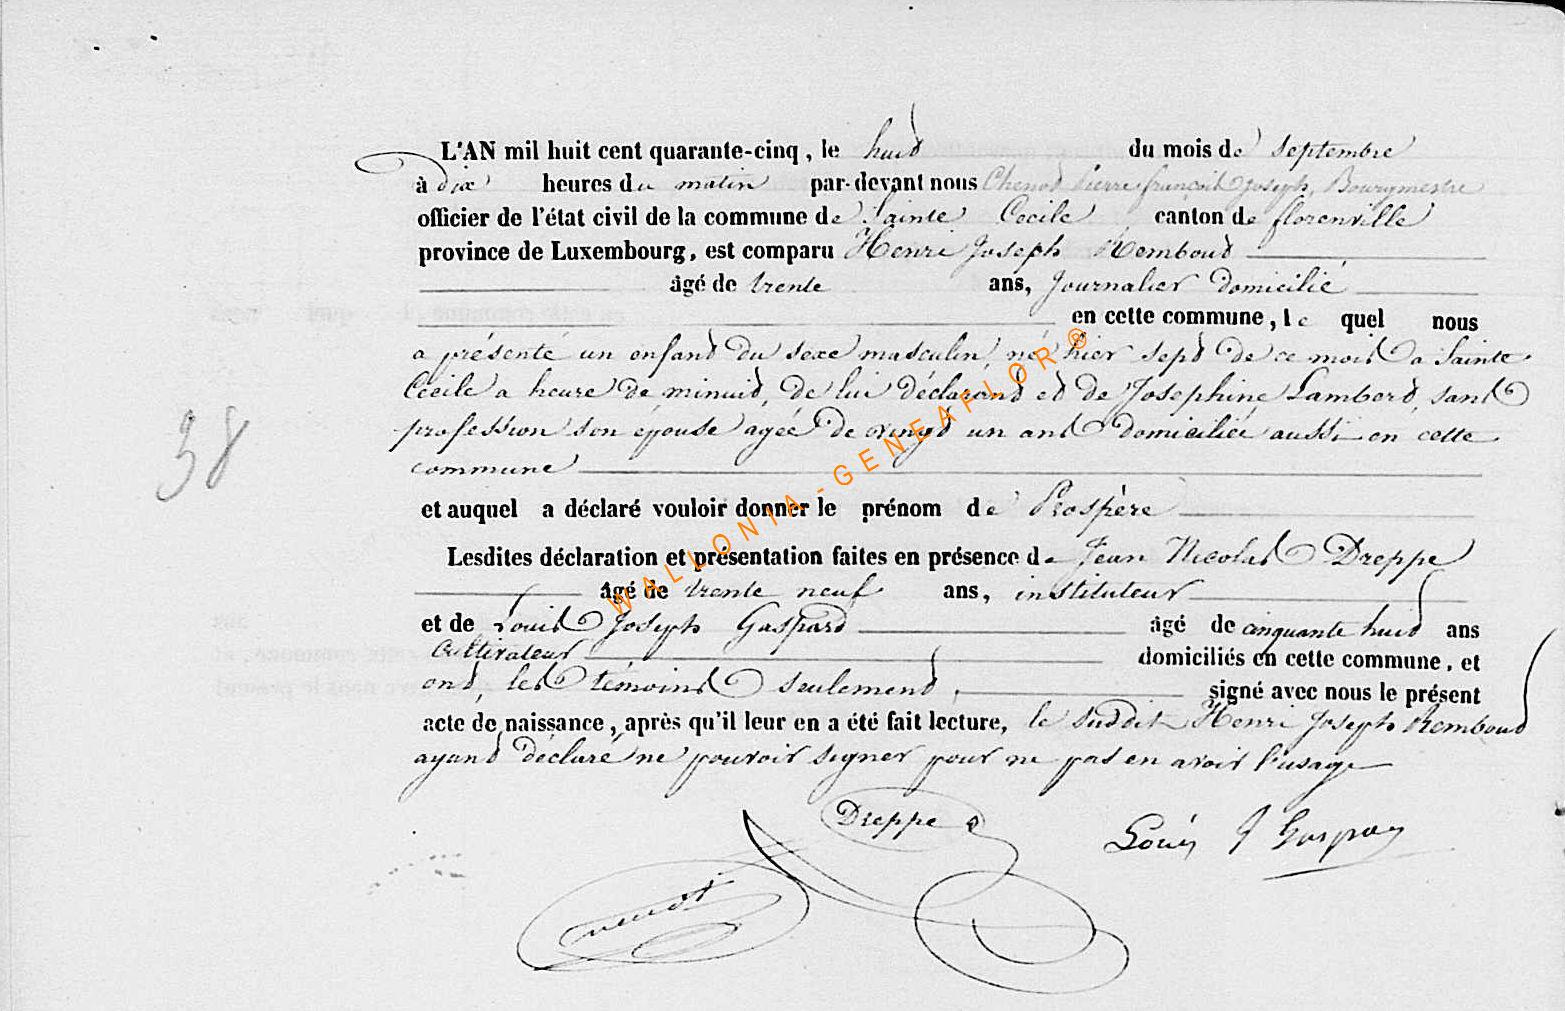 L'AN mil huit cent quarante-cinq, le huit du mois de septembre
à dix heures du matin par-devant nous Chenot Pierre françois Joseph, Bourgmestre
officier de l'état civil de la commune de Sainte Cecile canton de florenville
province de Luxembourg, est comparu Henri Joseph Rembout
âgé de trente ans, Journalier domicilié
en cette commune, le quel nous
a présenté un enfant du sexe masculin né hier sept de ce mois a Sainte
Cécile a heure de minuit, de lui déclarant et de Josephine Lambert, sans
profession son épouse agée de vingt un ans domiciliée aussi en cette
commune
et auquel a déclaré vouloir donner le prénom de Prospère
Lesdites déclaration et présentation faites en présence de Jean Nicolas Dreppe
âgé de trente neuf ans, instituteur
et de Louis Joseph Gaspard âgé de cinquante huit ans
Cultivateur domiciliés en cette commune, et
ont, les témoins seulement, signé avec nous le présent
acte de naissance, après qu'il leur en a été fait lecture, le susdit Henri Joseph Rembout
ayant déclaré ne pouvoir signer pour ne pas en avoir l'usage
38
Dreppe
Louis J Gaspar
Chenot
WALLONIA-GENEAFLOR®